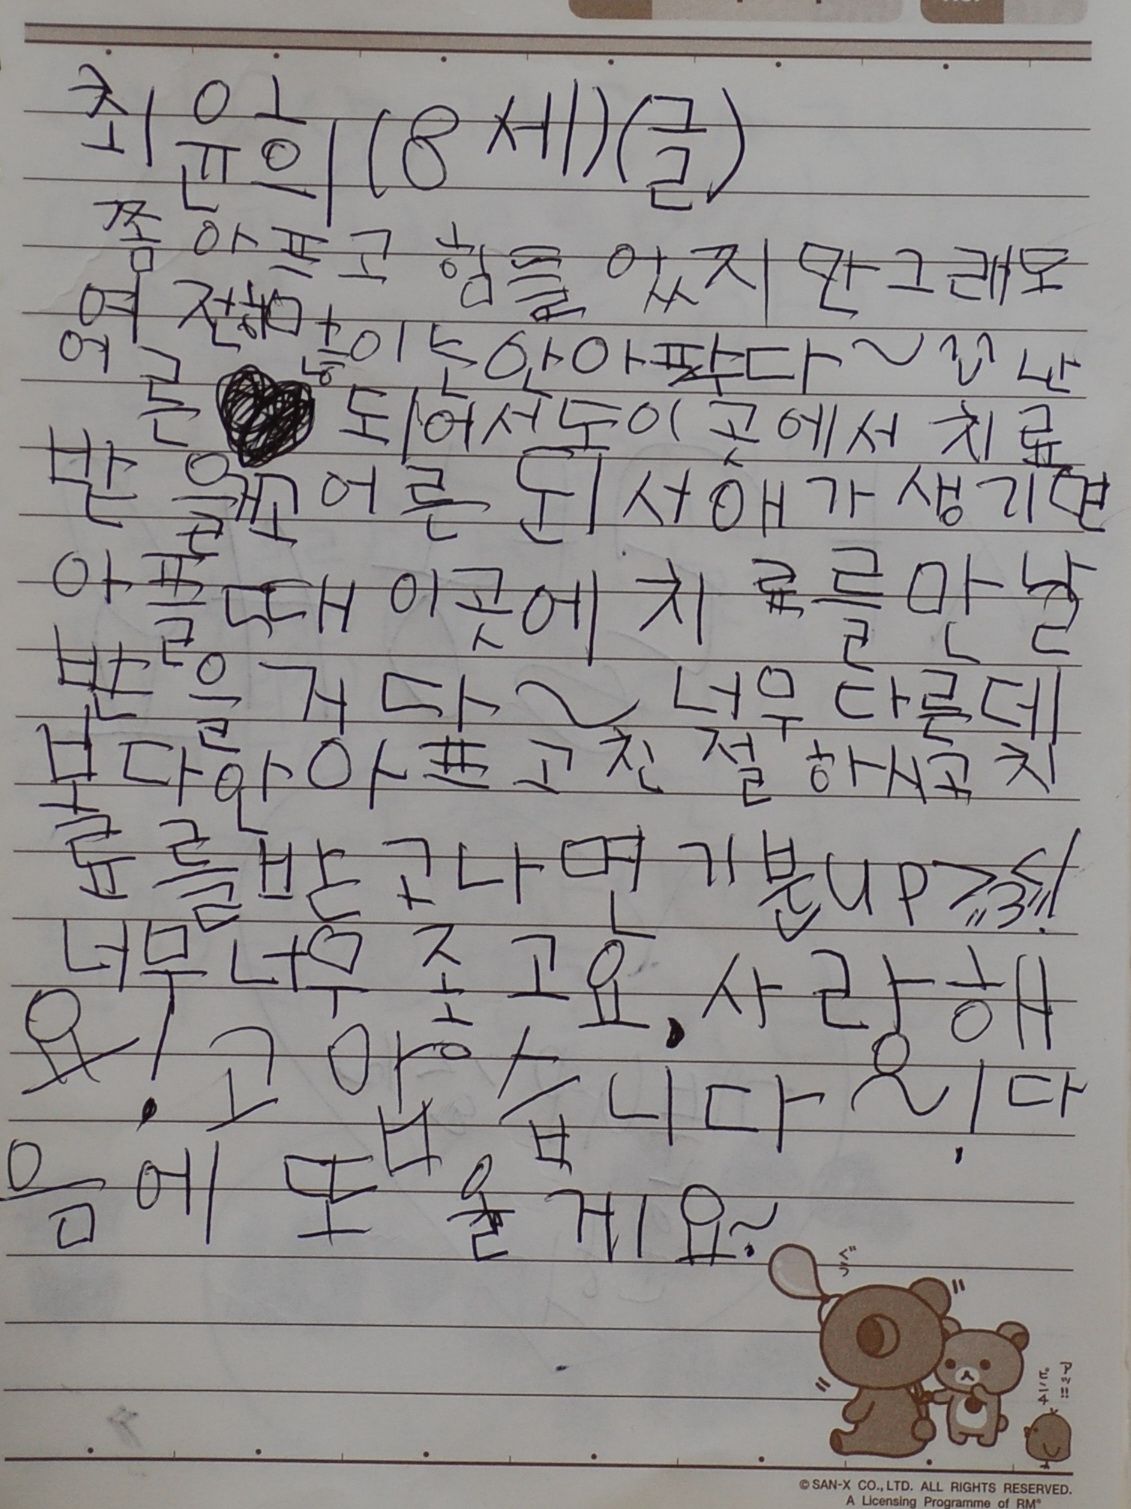 최윤의(8세)(글)
쫌 아프고 힘들 었지 만 그래도
여 전히 많이는 안 아팠다~ 꼬 난
어른 되어서도 이 곳에서 치료
받을꺼 어른 되서 애가 생기면
아플 때 이곳에 치료를 만날
받을 거다~ 너무 다른데
볻다 안아프고 친절하시고 치
료를 받고나면 기분UP
너무 너무 조고요, 사랑해
요! 고맙습니다~! 다
음에 또 올게요~.
ぐぅ
アッ!!
© SAN-X CO., LTD. ALL RIGHTS RESERVED.
A Licensing Programme of RM®